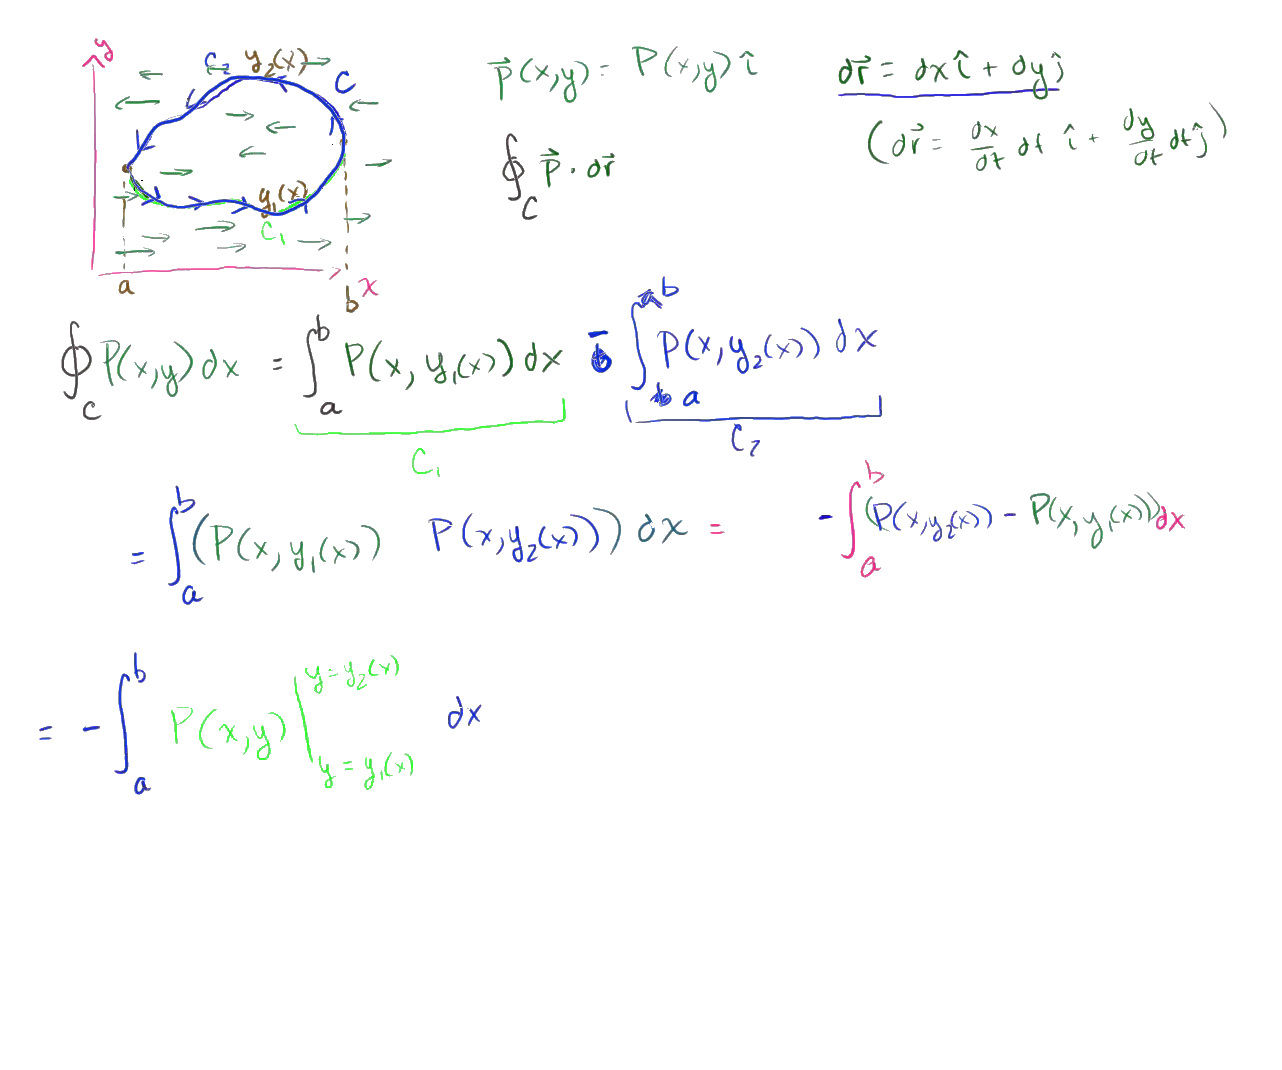 y
C₂ y₂(x)
C
y₁(x)
C₁
a
b x
P⃗(x,y) = P(x,y) î
dr⃗ = dx î + dy ĵ
(dr⃗ = dx/dt dt î + dy/dt dt ĵ)
∮_C P⃗ · dr⃗
∮_C P(x,y) dx = ∫_a^b P(x, y₁(x)) dx - ∫_a^b P(x, y₂(x)) dx
C₁ C₂
= ∫_a^b (P(x, y₁(x)) P(x, y₂(x))) dx = - ∫_a^b (P(x, y₂(x)) - P(x, y₁(x))) dx
= - ∫_a^b P(x,y) |_{y = y₁(x)}^{y = y₂(x)} dx